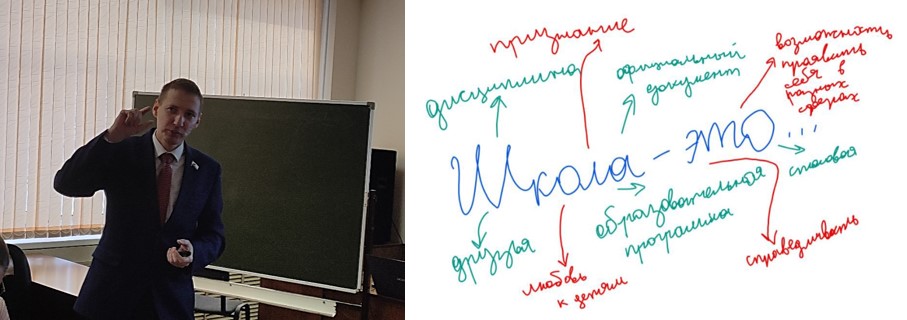 признание
дисциплина
официальный
документ
возможность
проявить
себя в
разных
сферах
Школа - это...
столовая
друзья
любовь
к детям
образовательная
программа
справедливость